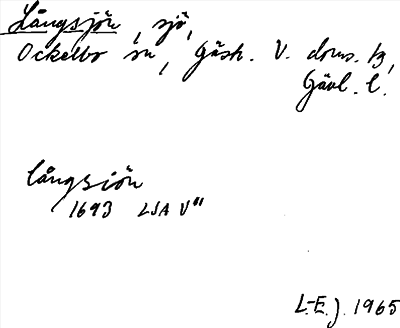 Långsjön, sjö,
Ockelbo sn, Gästr. V. doms. tg,
Gävl. l.
långsiön
1693 LSA V¹¹
L-E.J. 1965